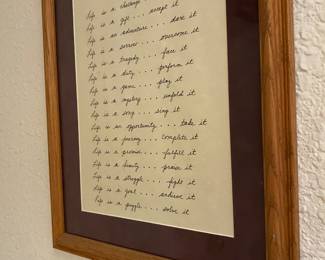 Life is a challenge
Life is a gift . . . accept it
Life is an adventure . . . dare it
Life is a sorrow . . . overcome it
Life is a tragedy . . . face it
Life is a duty . . . perform it
Life is a game . . . play it
Life is a mystery . . . unfold it
Life is a song . . . sing it
Life is an opportunity . . . take it
Life is a journey . . . complete it
Life is a promise . . . fulfill it
Life is a beauty . . . praise it
Life is a struggle . . . fight it
Life is a goal . . . achieve it
Life is a puzzle . . . solve it